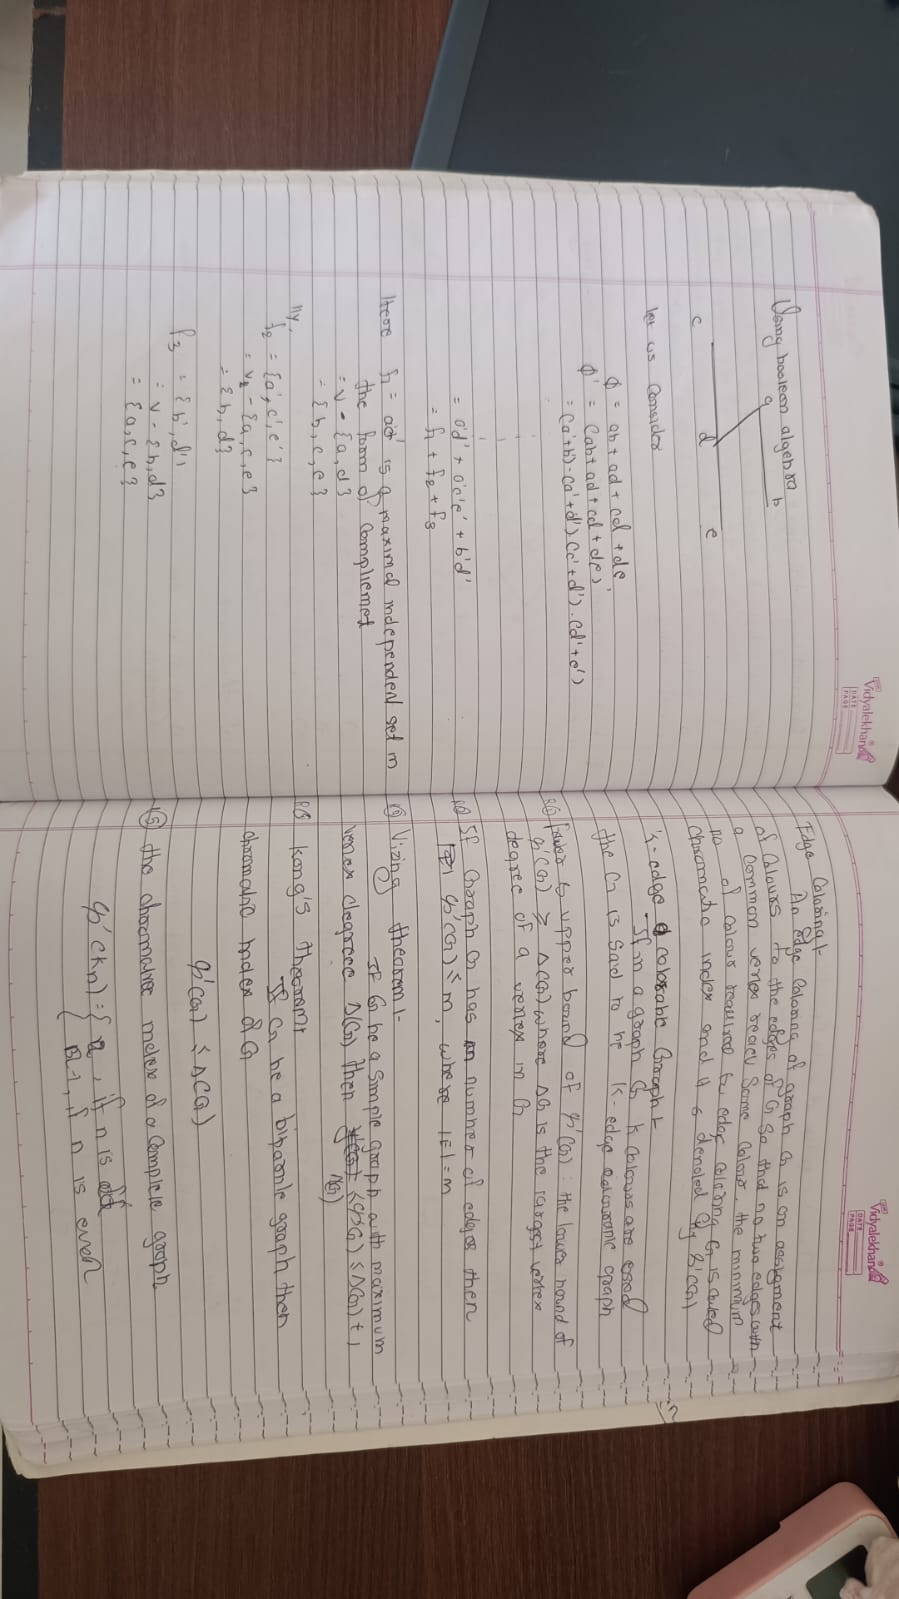 Vidyalekhan
DATE
PAGE
Using boolean algebra
a b
c d e
let us Consider
φ = ab + ad + cd + de
φ' = (ab + ad + cd + de)
= (a'+b)·(a'+d')·(c'+d')·(d'+e')
= a'd' + a'c'e' + b'd'
= f₁ + f₂ + f₃
Here f₁ = a'd' is a maximal independent set in
the form of Compliemet
= v - {a, d}
= {b, c, e}
lly,
f₂ = {a', c', e'}
= v - {a, c, e}
= {b, d}
f₃ = {b', d'}
= v - {b, d}
= {a, c, e}
Vidyalekhan
DATE
PAGE
Edge Coloring :-
An edge Coloring of graph G is an assigment
of Colours to the edges of G so that no two edges with
a Common vertex Same Colour, the minimum
no of Colour required for edge Coloring G is called
Chromatic index and it is denoted by φ'(G)
K-edge colorable Graph :-
If in a graph G K Colours are used
the G is said to be K-edge graph
lower & upper bound of φ'(G) : the lower bound of
φ'(G) ≥ Δ(G) where ΔG is the largest vertex
degree of a vertex in G
If Graph G has m number of edges then
φ'(G) ≤ m, where |E| = m
Vizing theorem :-
If G be a Simple graph with maximum
vertex degreee Δ(G) then ≤ φ'(G) ≤ Δ(G) + 1
Δ(G)
Kong's theorem :-
If G be a bipartite graph then
chromatic index of G
φ'(G) ≤ Δ(G)
⑤ the chromatic index of a Complete graph
φ'(Kn) = { n, if n is odd
{ n-1, if n is even